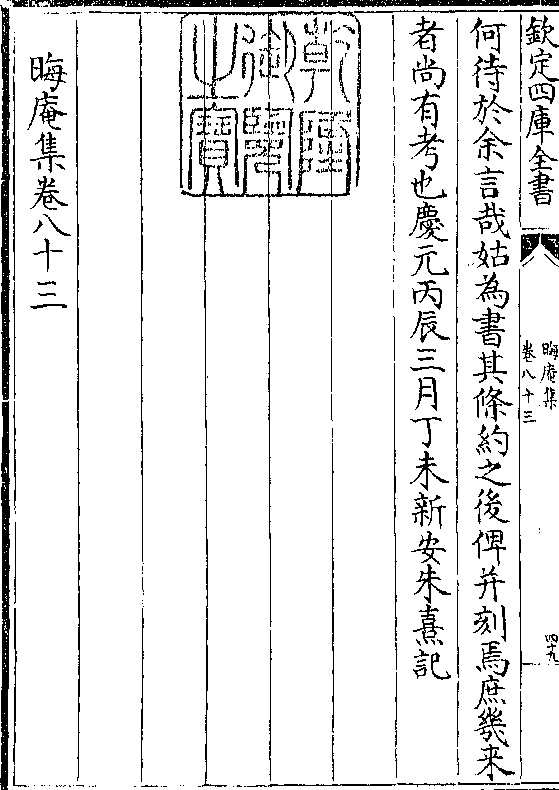 欽定四庫全書
晦庵集
卷八十三
四十九
何待於余言哉姑為書其條約之後俾并刻焉庶幾来
者尚有考也慶元丙辰三月丁未新安朱熹記
乾隆
御覽
之寶
晦庵集卷八十三